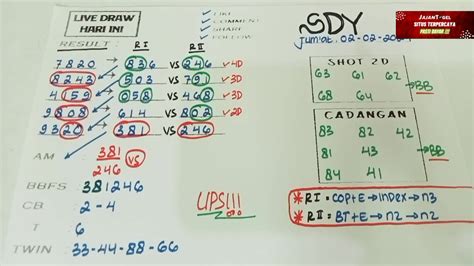 LIVE DRAW
HARI INI
LIKE
COMMENT
SHARE
FOLLOW
SDY
JAJANT♦GEL
SITUS TERPERCAYA
PASTI BAYAR !!!
RESULT : RI RII
7820 836 VS 246 ✓4D
8243 503 VS 791 ✓
4159 058 VS 468 ✓3D
9808 614 VS 802 ✓2D
9320 381 VS 246
AM 381 VS
246
BBFS : 381246
CB : 2-4
T : 6
TWIN : 33-44-88-66
LIPS!!!
SHOT 2D
63 61 62
68 64 →BB
CADANGAN
83 82 42
81 43 →BB
84 41
* RI = COP+E→INDEX→N3
* RII = BT+E→N2→N2